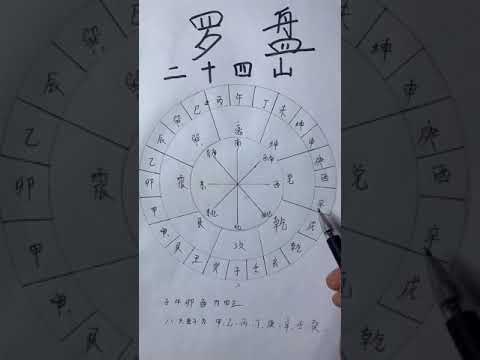 罗盘
二十四山
午 丁 未 坤 申 庚 酉 辛 戌 乾 亥 壬 子 癸 丑 艮 寅 甲 卯 乙 辰 巽 巳 丙
离 坤 兑 乾 坎 艮 震 巽
南 西南 西 西北 北 东北 东 东南
子午卯酉为四正
八大天干为 甲、乙、丙、丁、庚、辛、壬、癸